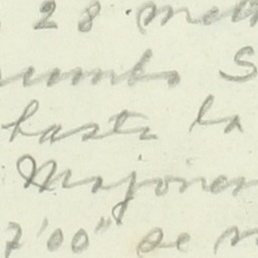 28 met
rumbo S
hasta la
Mojoner
7'00" se